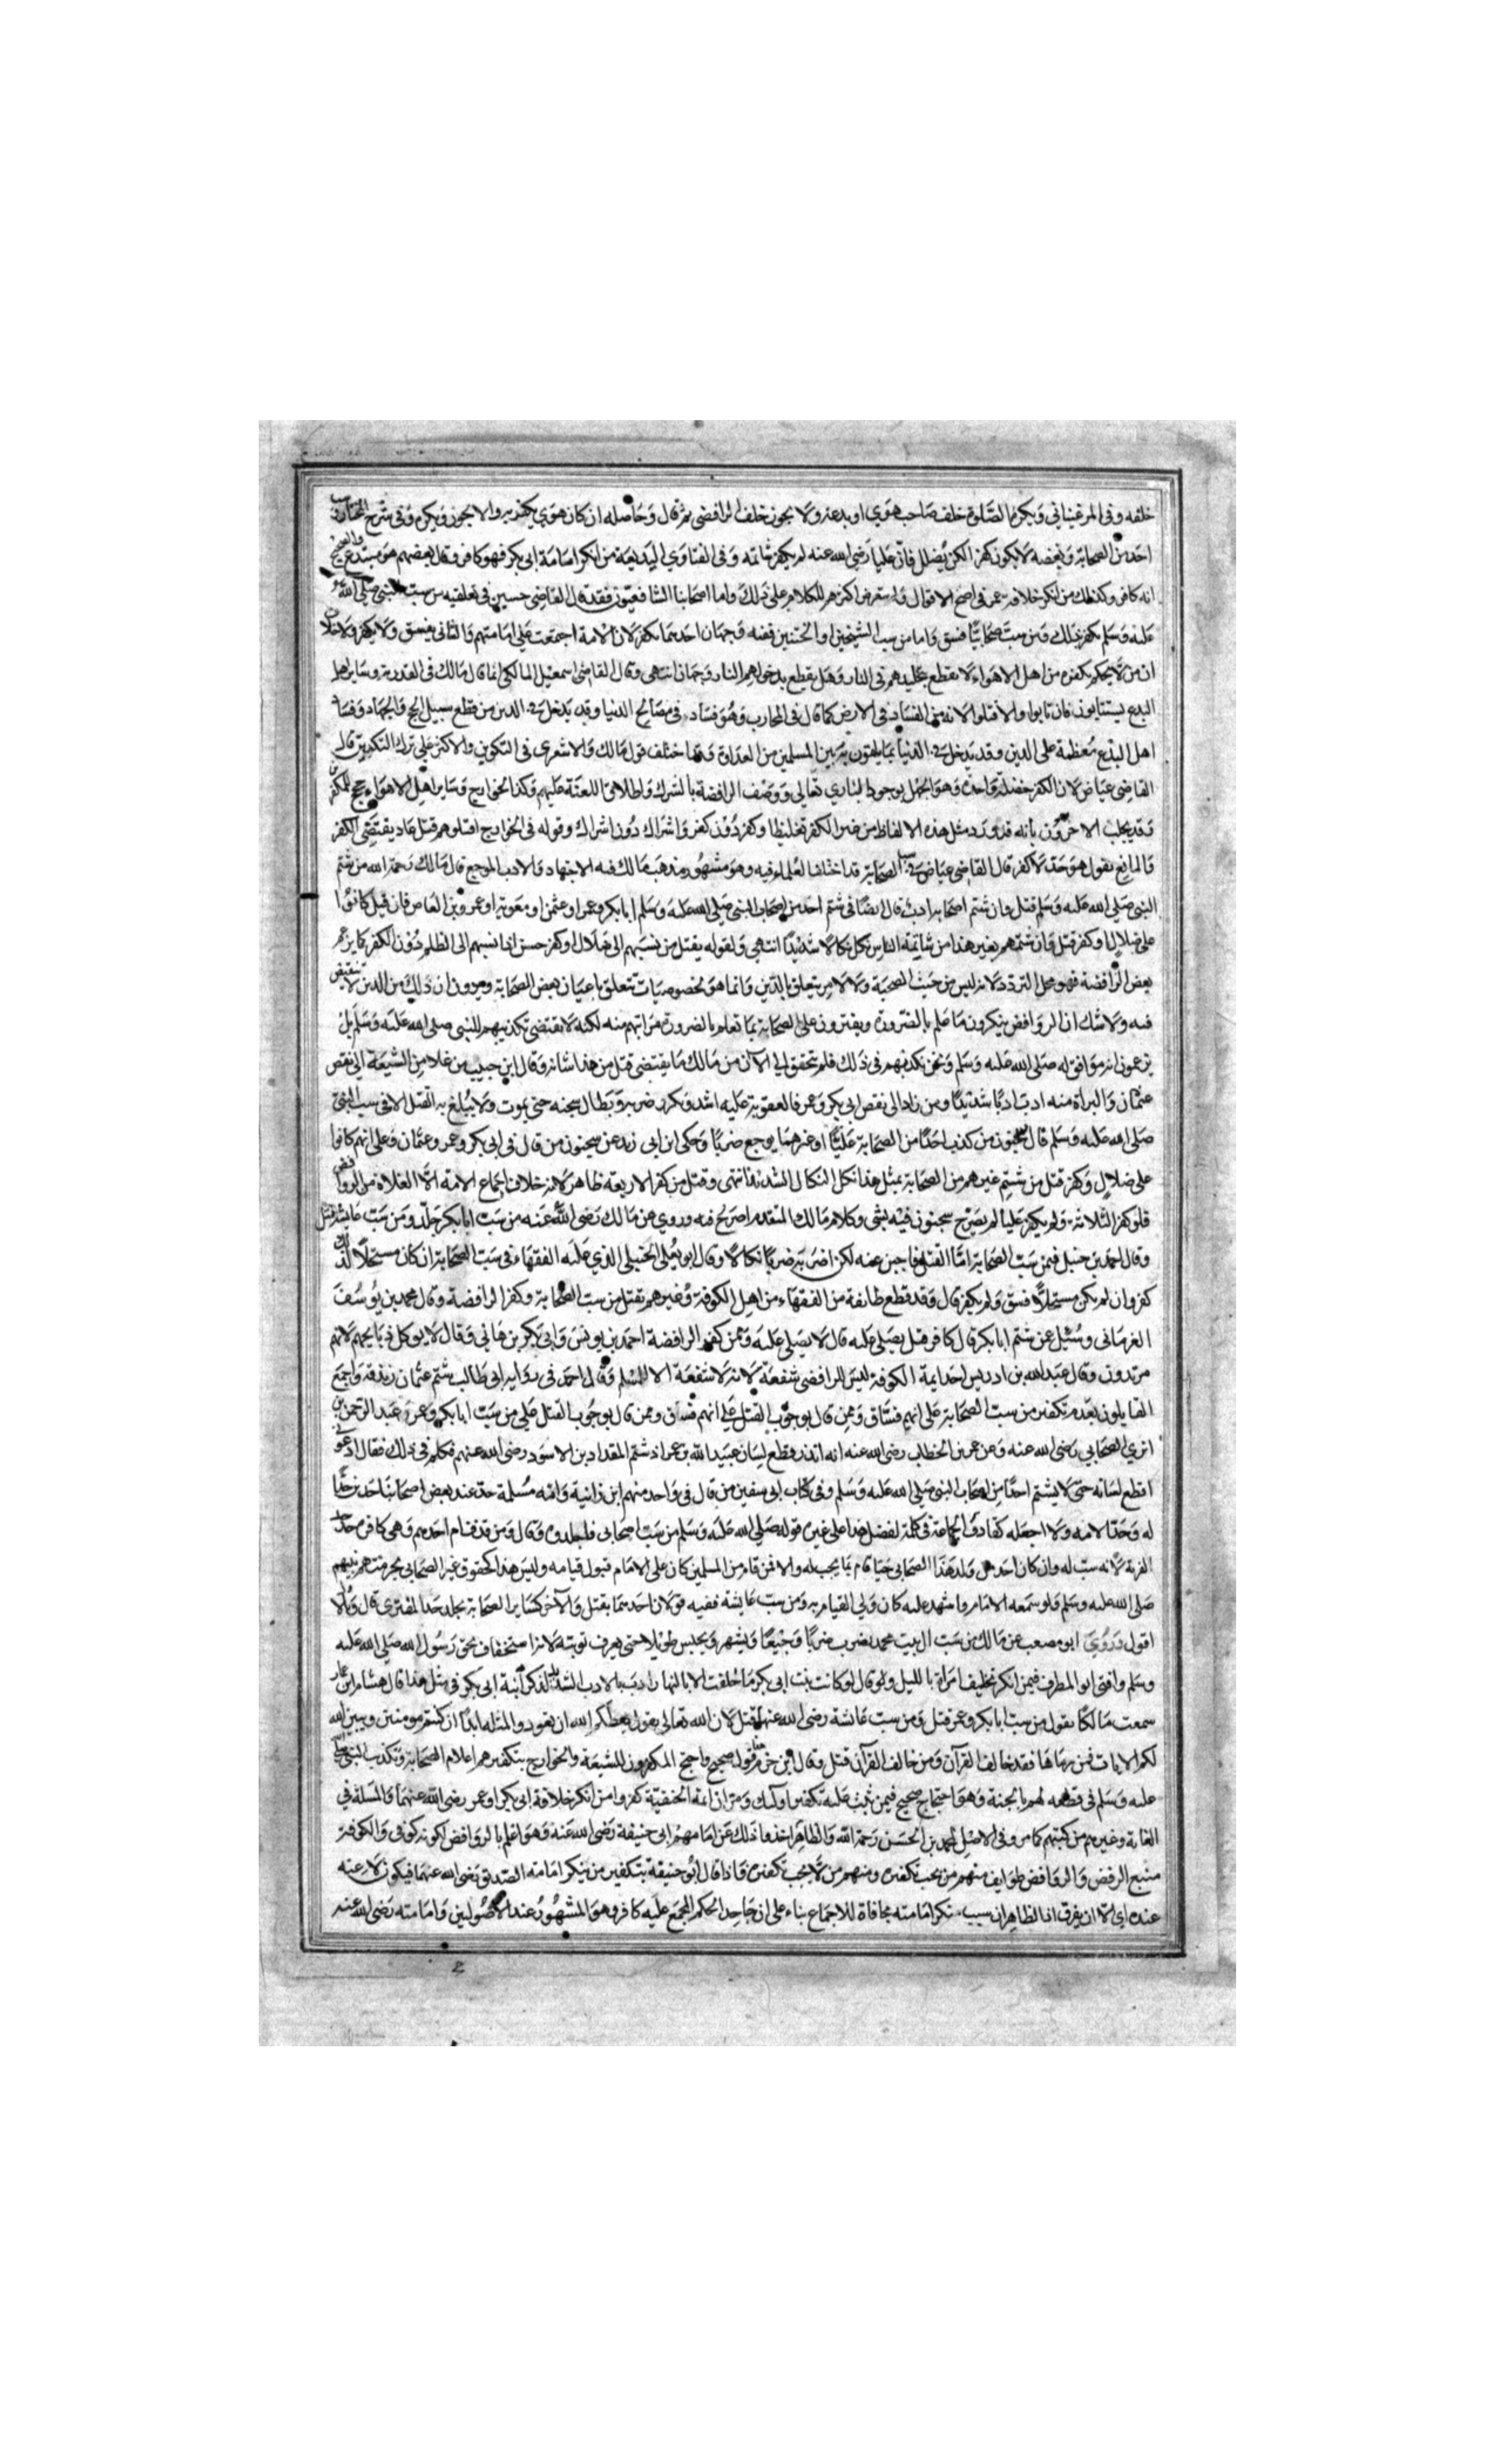 خلفه وفى المرغينانى وتكره الصلوة خلف صاحب هوى او بدعة ولا يجوز خلف الرافضى ثم قال وحاصله ان كان هوى يكفر به والا يجوز ويكره وفى شرح المختار وسب
احد من الصحابة وبغضه لا يكون كفرا لكن يضلل فان عليا رضى الله عنه لم يكفر شاتمه وفى الفتاوى البديعية من انكر امامة ابى بكر فهو كافر وقال بعضهم هو مبتدع والصحيح
انه كافر وكذلك من انكر خلافة عمر فى اصح الاقوال ولم يتعرض اكثرهم للكلام على ذلك واما اصحابنا الشافعيون فقد قال القاضى حسين فى تعليقه من سب النبى صلى الله
عليه وسلم يكفر بذلك ومن سب صحابيا فسق واما من سب الشيخين او الختنين ففيه وجهان احدهما يكفر لان الامة اجمعت على امامتهم والثانى يفسق ولا يكفر ولا خلاف
ان من لا يحكم بكفره من اهل الاهواء لا يقطع بتخليدهم فى النار وهل يقطع بدخولهم النار وجهان انتهى وقال القاضى اسمعيل المالكى انما قال مالك فى القدرية وساير اهل
البدع يستتابون فان تابوا والا قتلوا لانه من الفساد فى الارض كما قال فى المحارب وهو فساده فى مصالح الدنيا وقد يدخل فى الدين من قطع سبيل الحج والجهاد وفساد
اهل البدع معظمه على الدين وقد يدخل فى الدنيا بما يلقون به بين المسلمين من العداوة وقد اختلف قول مالك والاشعرى فى التكفير والاكثر على ترك التكفير قال
القاضى عياض لان الكفر خصلة واحدة وهو الجهل بوجود البارى تعالى ووصف الرافضة بالشرك واطلاق اللعنة عليهم وكذا الخوارج وساير اهل الاهواء حجج للمكفرين
وقد يجيب الاخرون بانه قد ورد مثل هذه الالفاظ من غير الكفر تغليظا وكفر دون كفر واشراك دون اشراك وقوله فى الخوارج اقتلوهم قتل عاد يقتضى الكفر
والمانع يقول هو حد لا كفر قال القاضى عياض فى سب الصحابة قد اختلف العلماء فيه وهو مشهور مذهب مالك فيه الاجتهاد والادب الموجع قال مالك رحمه الله من شتم
النبى صلى الله عليه وسلم قتل وان شتم اصحابه ادب قال ايضا فى شتم احد من اصحاب النبى صلى الله عليه وسلم ابا بكر وعمر او عثمن او معوية او عمرو بن العاص فان قيل كانوا
على ضلال او كفر قتل وان شتمهم بغير هذا من شاتمة الناس نكل نكالا شديدا انتهى وقوله يقتل من نسبهم الى ضلال او كفر حسن اذا نسبهم الى الظلم دون الكفر كما يزعم
بعض الرافضة فهو محل التردد لانه ليس من حيث الصحبة ولا لامر يتعلق بالدين وانما هو لخصوصيات تتعلق باعيان بعض الصحابة ويرون ان ذلك من الدين لا تنقيص
فيه ولا شك ان الروافض ينكرون ما علم بالضرورة ويفترون على الصحابة بما تعلم بالضرورة براتهم منه لكنه لا يقتضى تكذيبهم للنبى صلى الله عليه وسلم بل
يزعمون انه موافق له صلى الله عليه وسلم ونحن نكذبهم فى ذلك فلم يتحقق الى الآن من مالك ما يقتضى قتل من هذا شانه وقال ابن حبيب من غلا من الشيعة الى نقص
عثمان والبراة منه ادب ادبا شديدا ومن زاد الى نقص ابى بكر وعمر فالعقوبة عليه اشد ويكرر ضربه ويطال سجنه حتى يموت ولا يبلغ به القتل الا فى سب النبى
صلى الله عليه وسلم قال سحنون من كذب احدا من الصحابة عليا او غيرهما يوجع ضربا وحكى ابن ابى زيد عن سحنون من قال فى ابى بكر وعمر وعثمان وعلى انهم كانوا
على ضلال وكفر قتل من شتم غيرهم من الصحابة بمثل هذا نكل النكال الشديد انتهى وقتل من كفر الاربعة ظاهر لانه خلاف اجماع الامة الا الغلاة من الروافض
فلو كفر الثلاثة ولم يكفر عليا لم يصرح سحنون فيه بشى وكلام مالك المتقدم اصرح فيه وروى عن مالك رضى الله عنه من سب ابا بكر جلد ومن سب عايشة قتل
وقال احمد بن حنبل فيمن سب الصحابة اما القتل فاجبن عنه لكن اضربه ضربا نكالا وقال ابو يعلى الحنبلى الذى عليه الفقهاء فى سب الصحابة ان كان مستحلا لذلك
كفر وان لم يكن مستحلا فسق ولم يكفر قال وقد قطع طائفة من الفقهاء من اهل الكوفة وغيرهم بقتل من سب الصحابة وكفر الرافضة وقال محمد بن يوسف
الغريانى وسئل عن شتم ابا بكر قال كافر قيل يصلى عليه قال لا يصلى عليه وممن كفر الرافضة احمد بن يونس وابى بكر بن هانى وقال لا يوكل ذبايحهم لانهم
مرتدون وقال عبد الله بن ادريس احد ايمة الكوفة ليس للرافضى شفعة لانه لا شفعة الا للمسلم وقال احمد فى رواية ابى طالب شتم عثمان زندقة واجمع
القايلون بعدم تكفير من سب الصحابة على انهم فساق وممن قال بوجوب القتل على انهم فساق وممن قال بوجوب القتل على من سب ابا بكر وعمر وعبد الرحمن بن
ابزى الصحابى رضى الله عنه وعن عمر بن الخطاب رضى الله عنه انه انذر وقطع لسان عبيد الله بن عمر اذ شتم المقداد بن الاسود رضى الله عنهم فكلم فى ذلك فقال ادعونى
اقطع لسانه حتى لا يشتم احدا من اصحاب النبى صلى الله عليه وسلم وفى كتاب ابى سفين من قال فى واحد منهم ابن زانية وامه مسلمة حد عند بعض اصحابنا حدين حدا
له وحدا لامه ولا اجعله كقاذف الجماعة فى كلمة لفضل هذا على غيره قوله صلى الله عليه وسلم من سب اصحابى فاجلدوه وقال ومن قذف ام احدهم وهى كافرة حد حد
الفرية لانه سب له وان كان احد من ولد هذا الصحابى حيا قام بما يجب له والا فمن قام من المسلمين كان على الامام قبول قيامه وليس هذا كحقوق غير الصحابى بحرمتهم بنبيهم
صلى الله عليه وسلم ولو سمعه الامام واشهد عليه كان ولى القيام به ومن سب عايشة ففيه قولان احدهما يقتل والآخر كساير الصحابة يجلد حد المفترى قال وبالاول
اقول وروى ابو مصعب عن مالك من سب ال بيت محمد يضرب ضربا وجيعا ويشهر ويحبس طويلا حتى يعرف توبته لانه استخفاف بحق رسول الله صلى الله عليه
وسلم وافتى ابو المطرف فيمن انكر تحليف امراة بالليل ولو قال لو كانت بنت ابى بكر ما حلفت الا بالنهار ادب بالادب الشديد لذكر ابنة ابى بكر فى مثل هذا قال هشام ابن عمار
سمعت مالكا يقول من سب ابا بكر وعمر قتل ومن سب عائشة رضى الله عنها قتل لان الله تعالى يقول يعظكم الله ان تعودوا لمثله ابدا ان كنتم مومنين ويبين الله
لكم الايات فمن رماها فقد خالف القرآن ومن خالف القرآن قتل وقال ابن حزم هذا قول صحيح واحتج المكفرون للشيعة والخوارج بتكفيرهم اعلام الصحابة وتكذيب النبى صلى الله
عليه وسلم فى قطعه لهم بالجنة وهو احتجاج صحيح فيمن ثبت عليه تكفير اولئك ومر ان ايمة الحنفية كفروا من انكر خلافة ابى بكر او عمر رضى الله عنهما والمسئلة فى
الغاية وغيرهم من كتبهم كما مر وفى الاصل لمحمد بن الحسن رحمه الله والظاهر اخذوا ذلك عن امامهم ابى حنيفة رضى الله عنه وهو اعلم بالروافض لكونه كوفى والكوفة
منبع الرفض والروافض طوايف منهم من يجب تكفيره ومنهم من لا يجب تكفيره فاذا قال ابو حنيفة بتكفير من ينكر امامة الصديق رضى الله عنهما فيكون لاعنه
عنده اى الا ان يفرق اذ الظاهر ان سبب منكر امامته مخافة للاجماع بناء على ان جاحد الحكم المجمع عليه كافر وهو المشهور عند الاصوليين وامامته رضى الله عنه